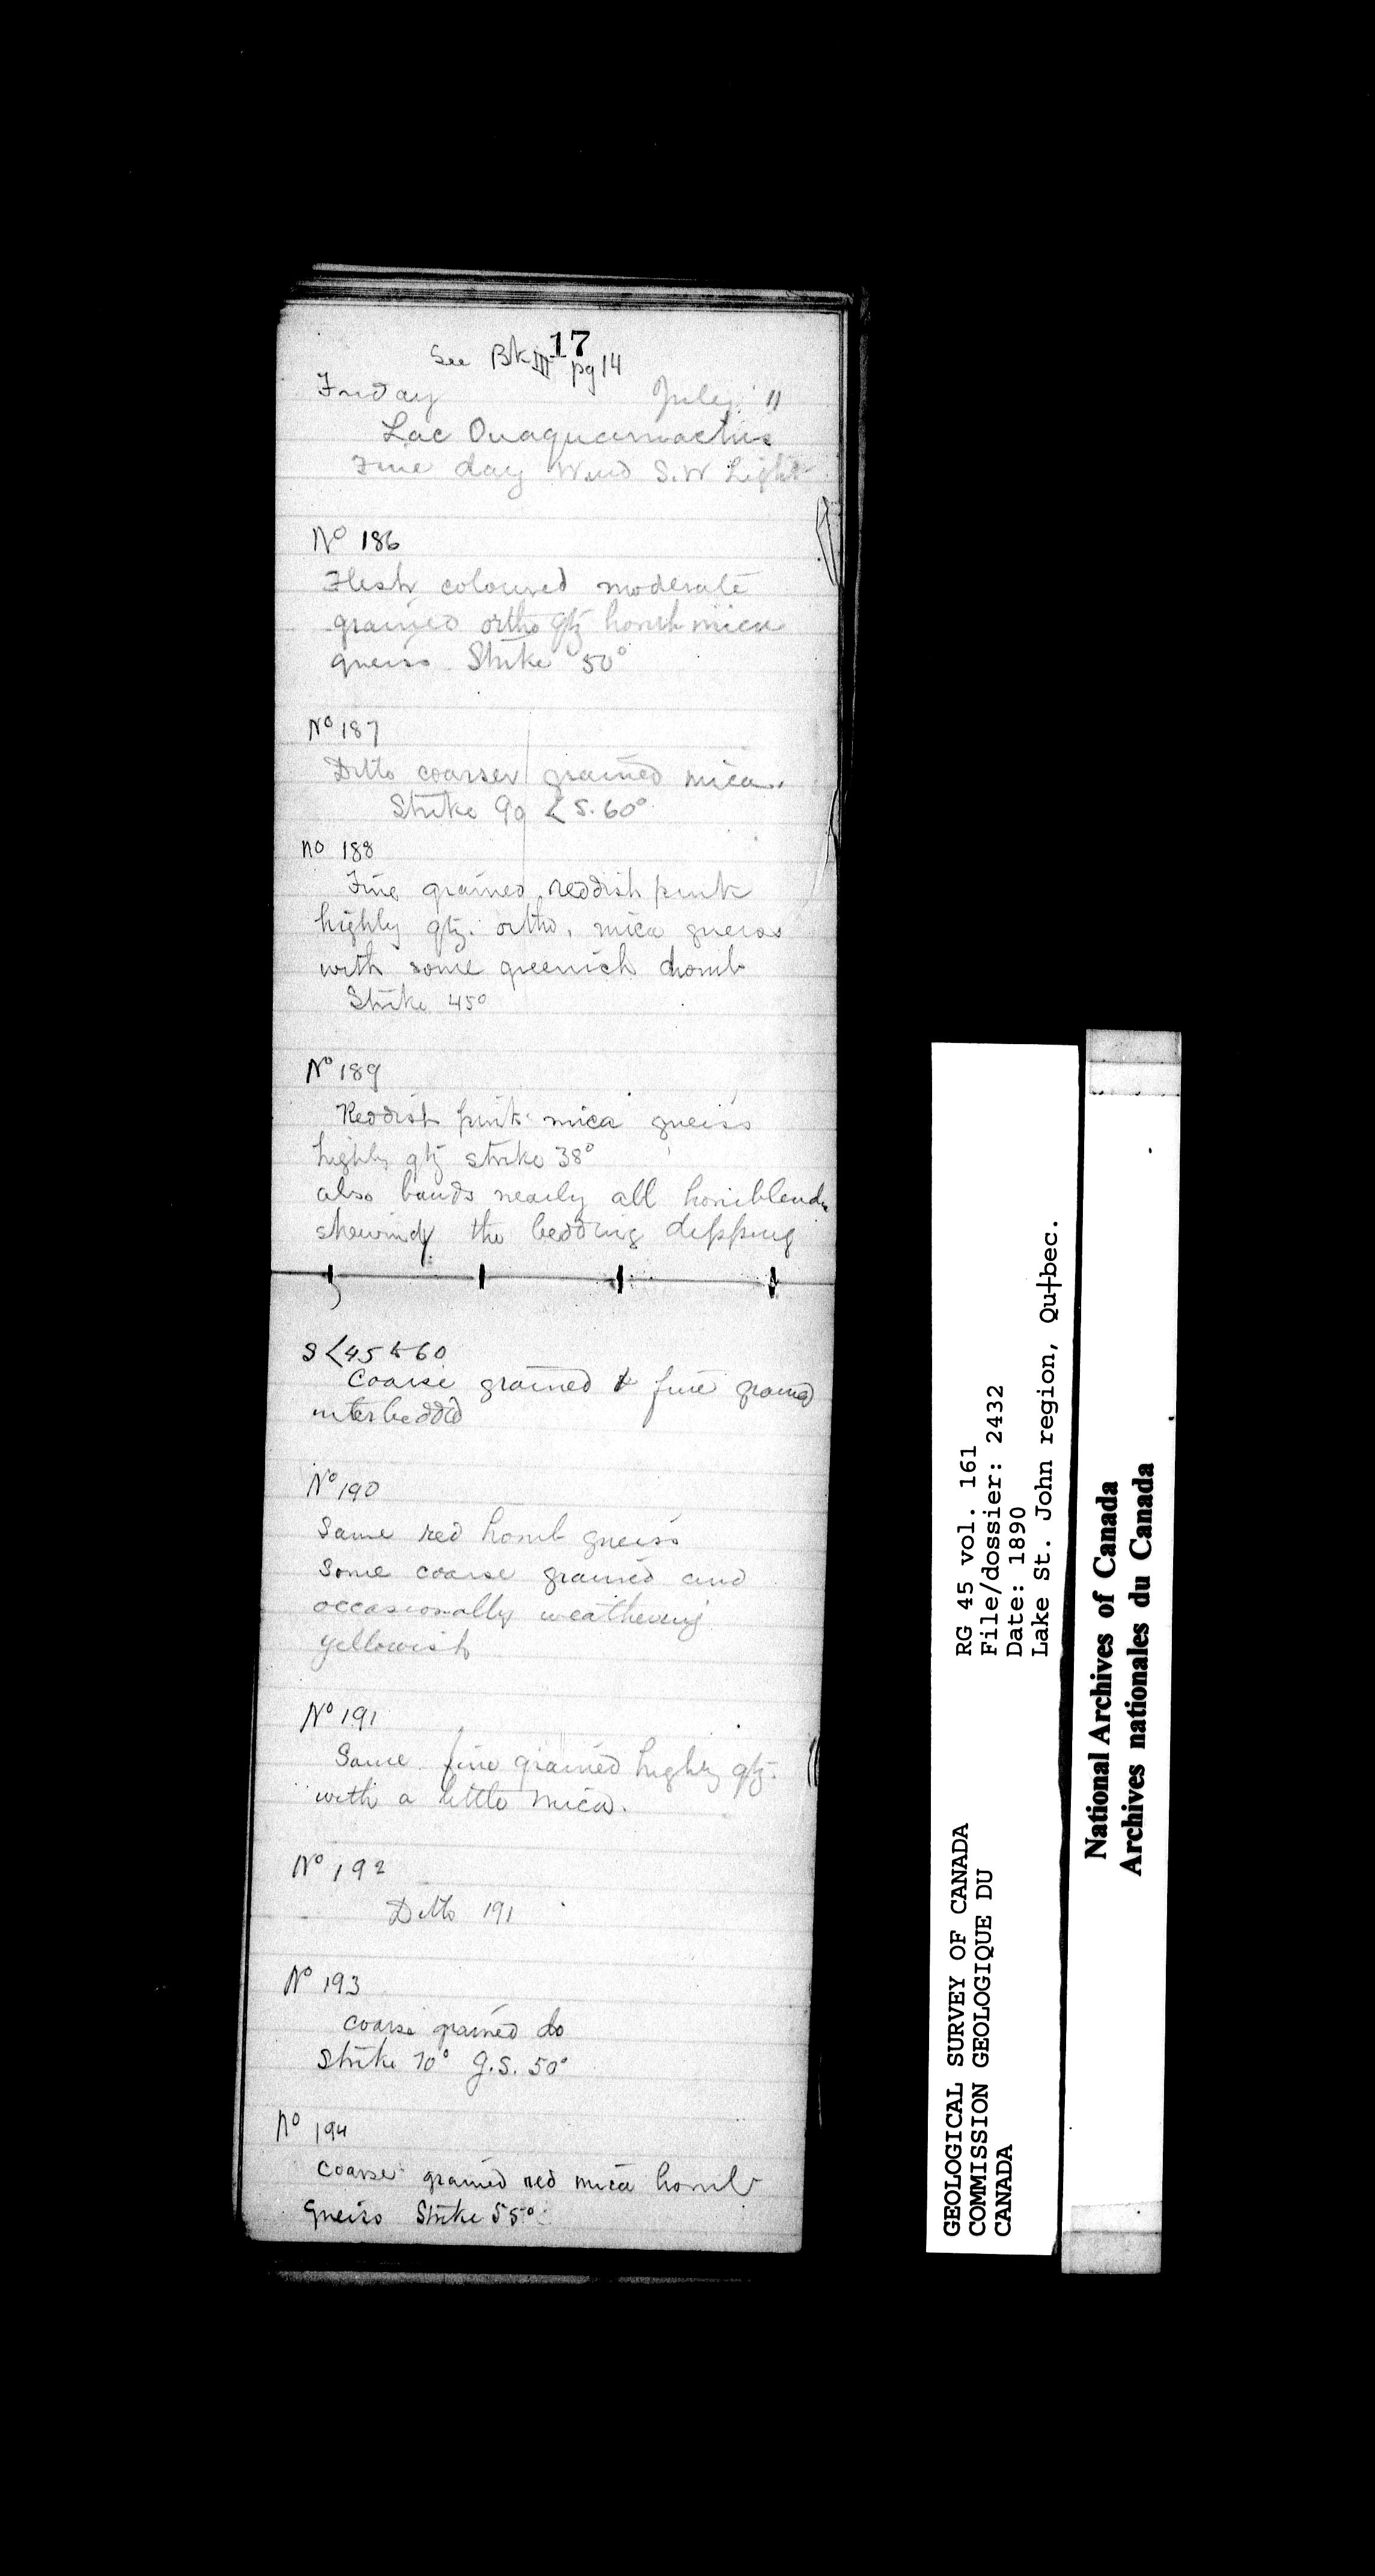 17
See Bk III pg 14
Friday July 11
Lac Ouaquamachis
Fine day Wind S.W Light
No 186
Flesh coloured moderate
grained ortho qtz hornb mica
gneiss. Strike 50°
No 187
Ditto coarser grained mica.
Strike 90 < S. 60°
no 188
Fine grained reddish pink
highly qtz. ortho. mica gneiss
with some greenish hornb
Strike 45°
No 189
Reddish pink mica gneiss
highly qtz strike 38°
also bands nearly all hornblende
shewing the bedding dipping
S < 45 to 60
Coarse grained & fine grained
interbedded
No 190
Same red hornb gneiss
Some coarse grained and
occasionally weathering
yellowish
No 191
Same fine grained highly qtz.
with a little mica.
No 192
Ditto 191
No 193
Coarse grained do
Strike 70° S. 50°
No 194
Coarse grained red mica hornb
Gneiss Strike 55°
GEOLOGICAL SURVEY OF CANADA
COMMISSION GEOLOGIQUE DU
CANADA
RG 45 vol. 161
File/dossier: 2432
Date: 1890
Lake St. John region, Qu†bec.
National Archives of Canada
Archives nationales du Canada